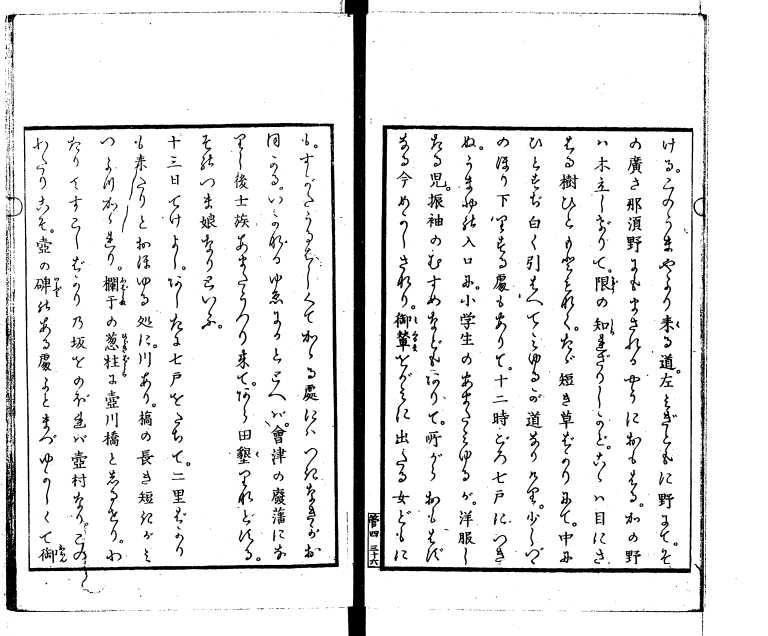 ける。このうまやより来る道。左みぎともに野にて。そ
の廣さ那須野にもまされるやうにおもはる。かの野
ハ木立しげりて。限の知られざりしかど。こゝハ目にさ
はる樹ひともとだになく。たゞ短き草ばかりにて。中に
ひとすぢ白く引はへてみゆるが道なりけり。少しづゝ
のぼり下りする處もありて。十二時ごろ七戸につき
ぬ。うまやの入口に。小学生のあまたみゆるが。洋服し
たる児。振袖のむすめなどもありて。所がらおもはず
なる今めかしされり。御輦ををがみに出たる女どもに
も。すがたうるはしくて。かゝる處にハつきなきがお
ほかる。いかなるゆゑにかとゝへバ。會津の廢藩にな
りし後士族あまたうつり来て。あら田墾りなどする。
それらのつま娘なりといふ。
十三日てけよし。あしたに七戸をたちて。二里ばかり
も来たりとおぼゆる処に。川あり。橋の長き短きがミ
つよつかゝれり。欄干の葱柱に壺川橋としるせり。わ
たりてすこしばかり乃坂をのぼれバ壺村なり。このし
わたりこそ。壺の碑のある處よとまづゆかしくて御
管四 三十六